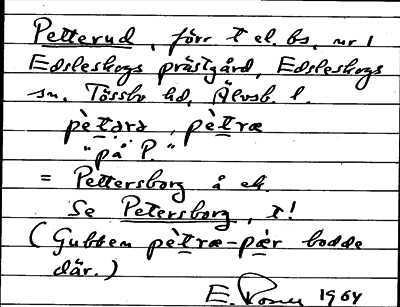 Petterud, förr t el. bs, nr 1
Edsleskogs prästgård, Edsleskogs
sn, Tössbo hd, Älvsb. l.
pètərə, pètræ
"på P."
= Pettersborg å ek.
Se Petersborg, t!
(Gubben pètræ-pær bodde
där.)
E. 1964